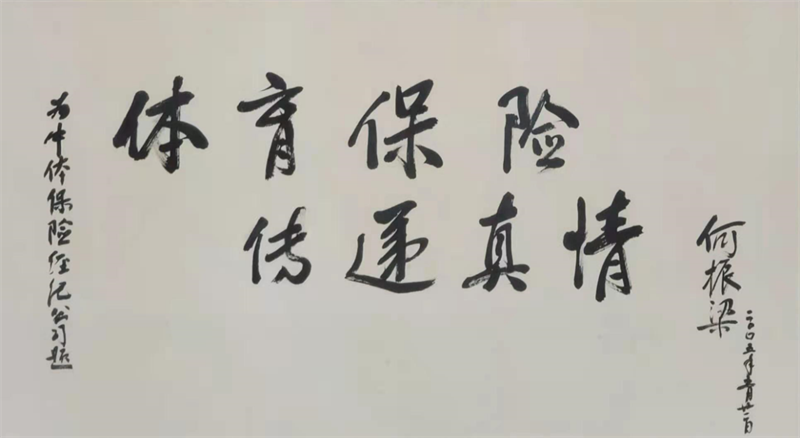 为中体保险经纪公司题
体育保险
传递真情
何振梁
二〇〇五年